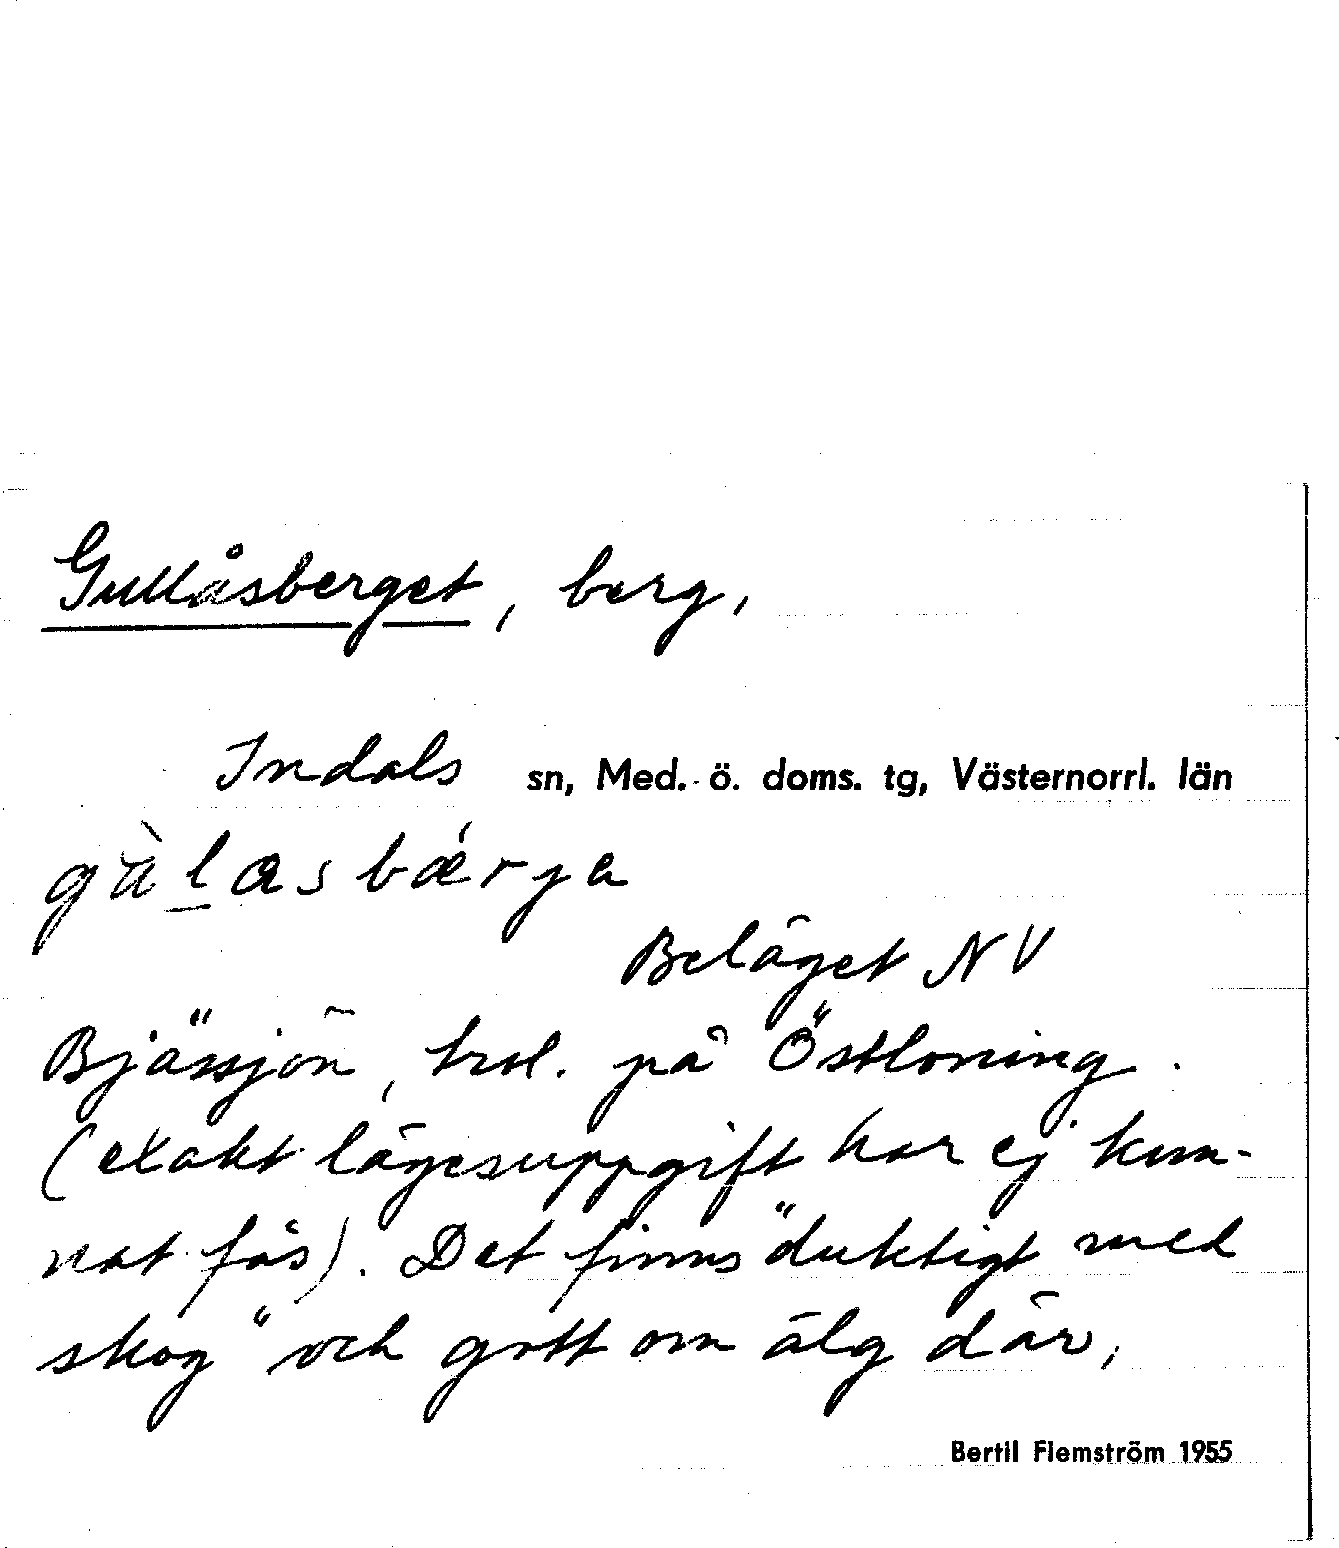 Gullåsberget, berg,
Indals sn, Med. ö. doms. tg, Västernorrl. län
gὰlasbǽrja
Beläget NV
Bjässjön, trol. på Östloning.
(exakt lägesuppgift har ej kun-
nat fås). Det finns "duktigt med
skog" och gott om älg där,
Bertil Flemström 1955